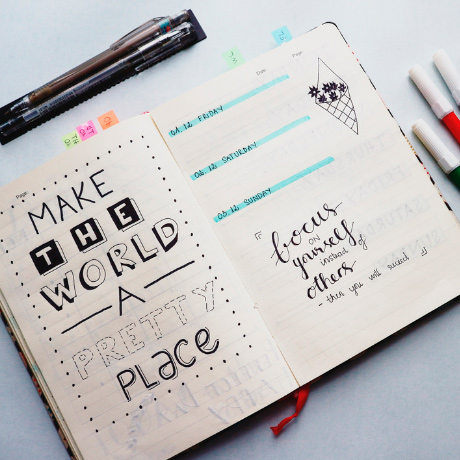 Page:
MAKE
THE
WORLD
A
PRETTY
PLACE
Date: Page:
01.12 FRIDAY
02.12 SATURDAY
03.12 SUNDAY
focus
ON
yourself
instead of
others
- then you will succeed